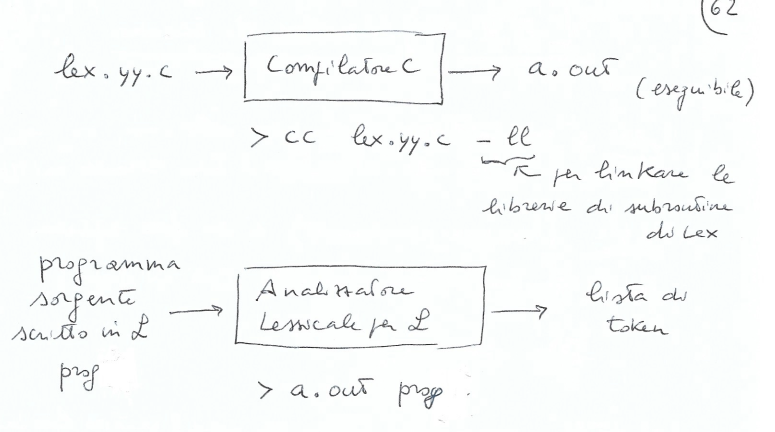 62
lex.yy.c → Compilatore C → a.out
(eseguibile)
> cc lex.yy.c -ll
per linkare le
librerie di subroutine
di Lex
programma
sorgente
scritto in L
prog
→ Analizzatore
Lessicale per L
→ lista di
token
> a.out prog